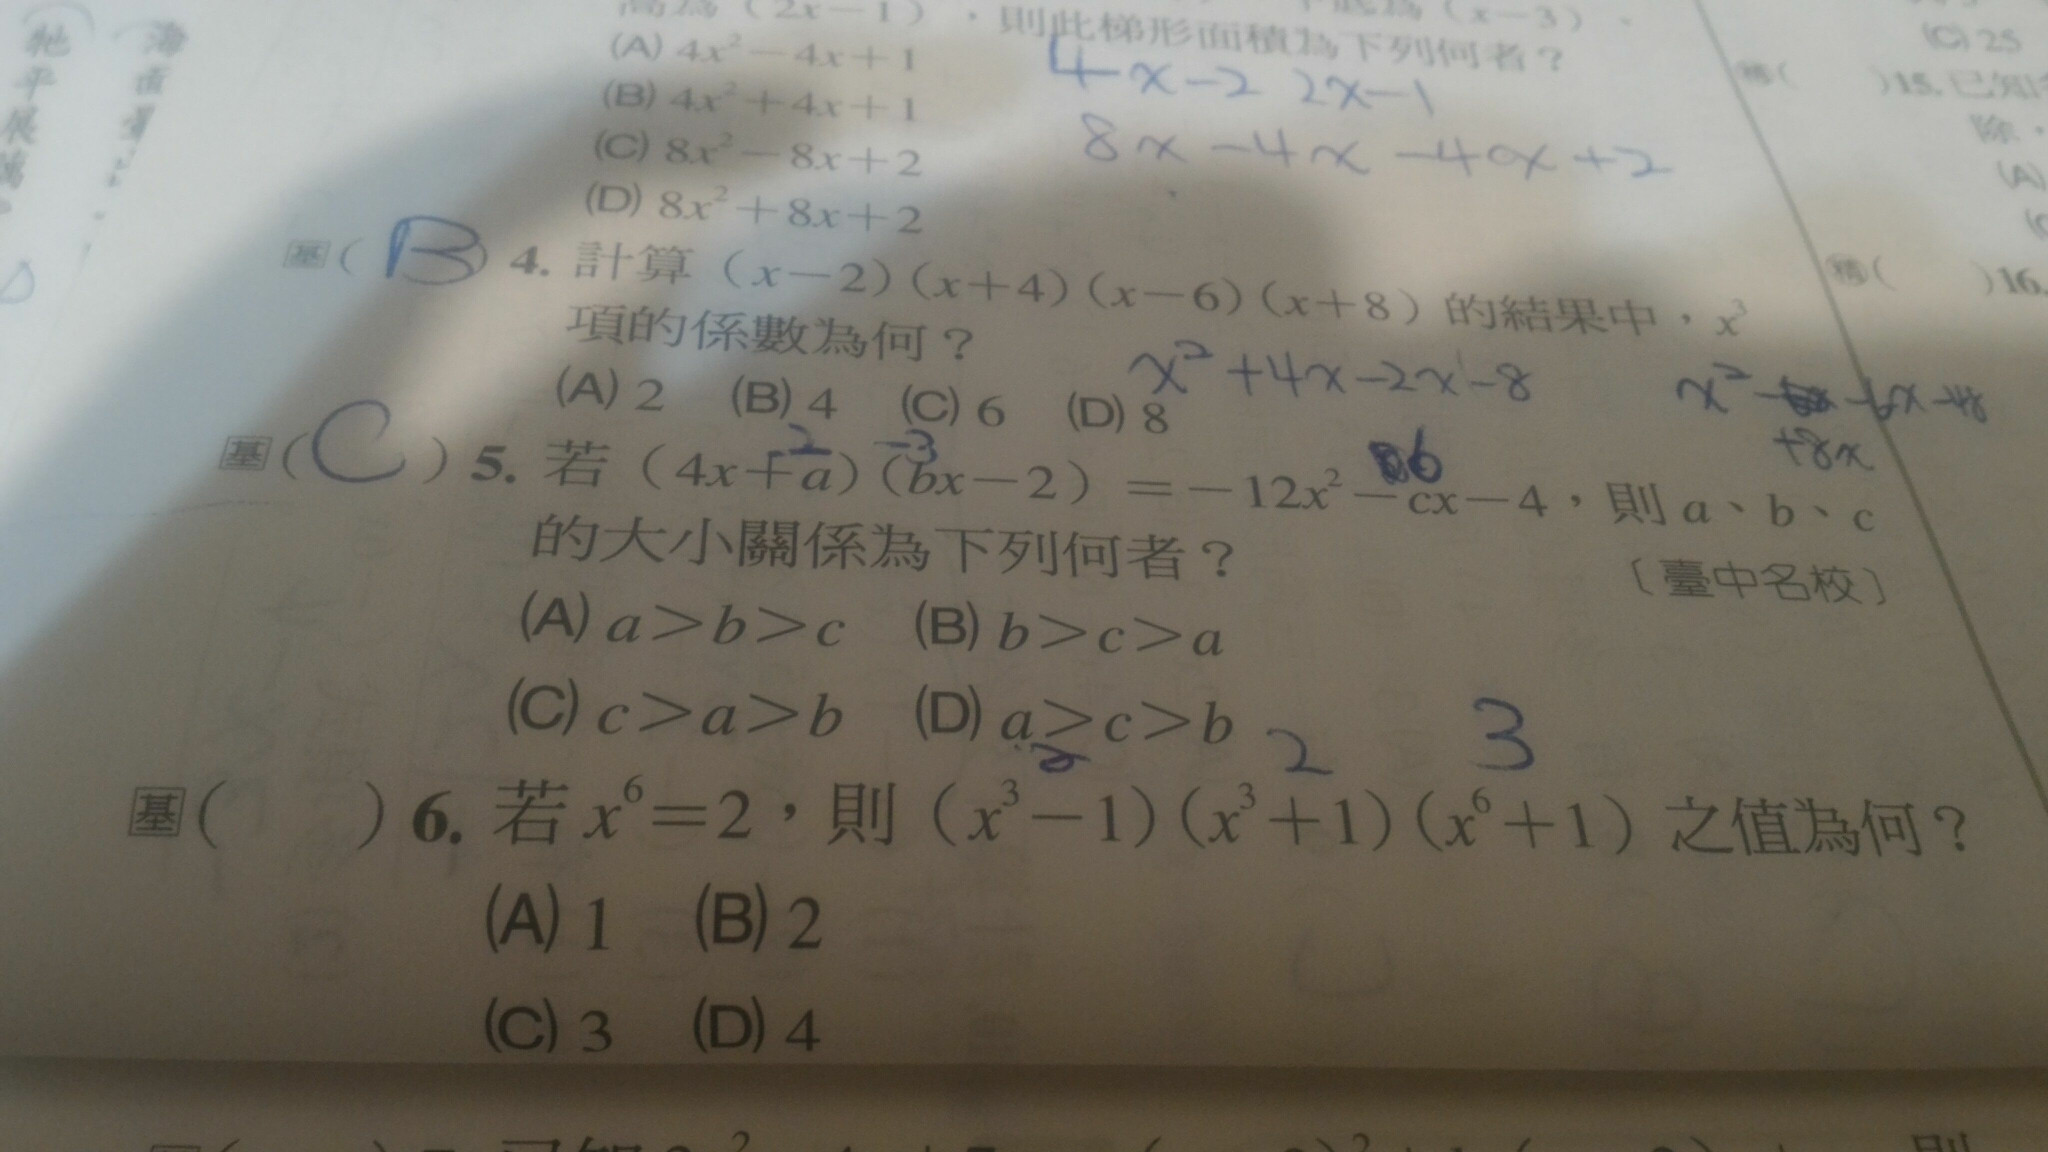 高為（2x－1），則此梯形面積為下列何者？
(A) 4x²－4x＋1
(B) 4x²＋4x＋1
(C) 8x²－8x＋2
(D) 8x²＋8x＋2
4x-2 2x-1
8x-4x-4x+2
基( B ) 4. 計算（x－2）(x＋4）(x－6）(x＋8）的結果中，x³
項的係數為何？
(A) 2 (B) 4 (C) 6 (D) 8
x²+4x-2x-8
+8x
2 -3 6
基( C ) 5. 若（4x＋a）(bx－2）＝－12x²－cx－4，則 a、b、c
的大小關係為下列何者？
〔臺中名校〕
(A) a＞b＞c (B) b＞c＞a
(C) c＞a＞b (D) a＞c＞b
2 2 3
基( ) 6. 若 x⁶＝2，則（x³－1）(x³＋1）(x⁶＋1）之值為何？
(A) 1 (B) 2
(C) 3 (D) 4
(C) 25
精( ) 15. 已知
除，
(A)
精( ) 16.